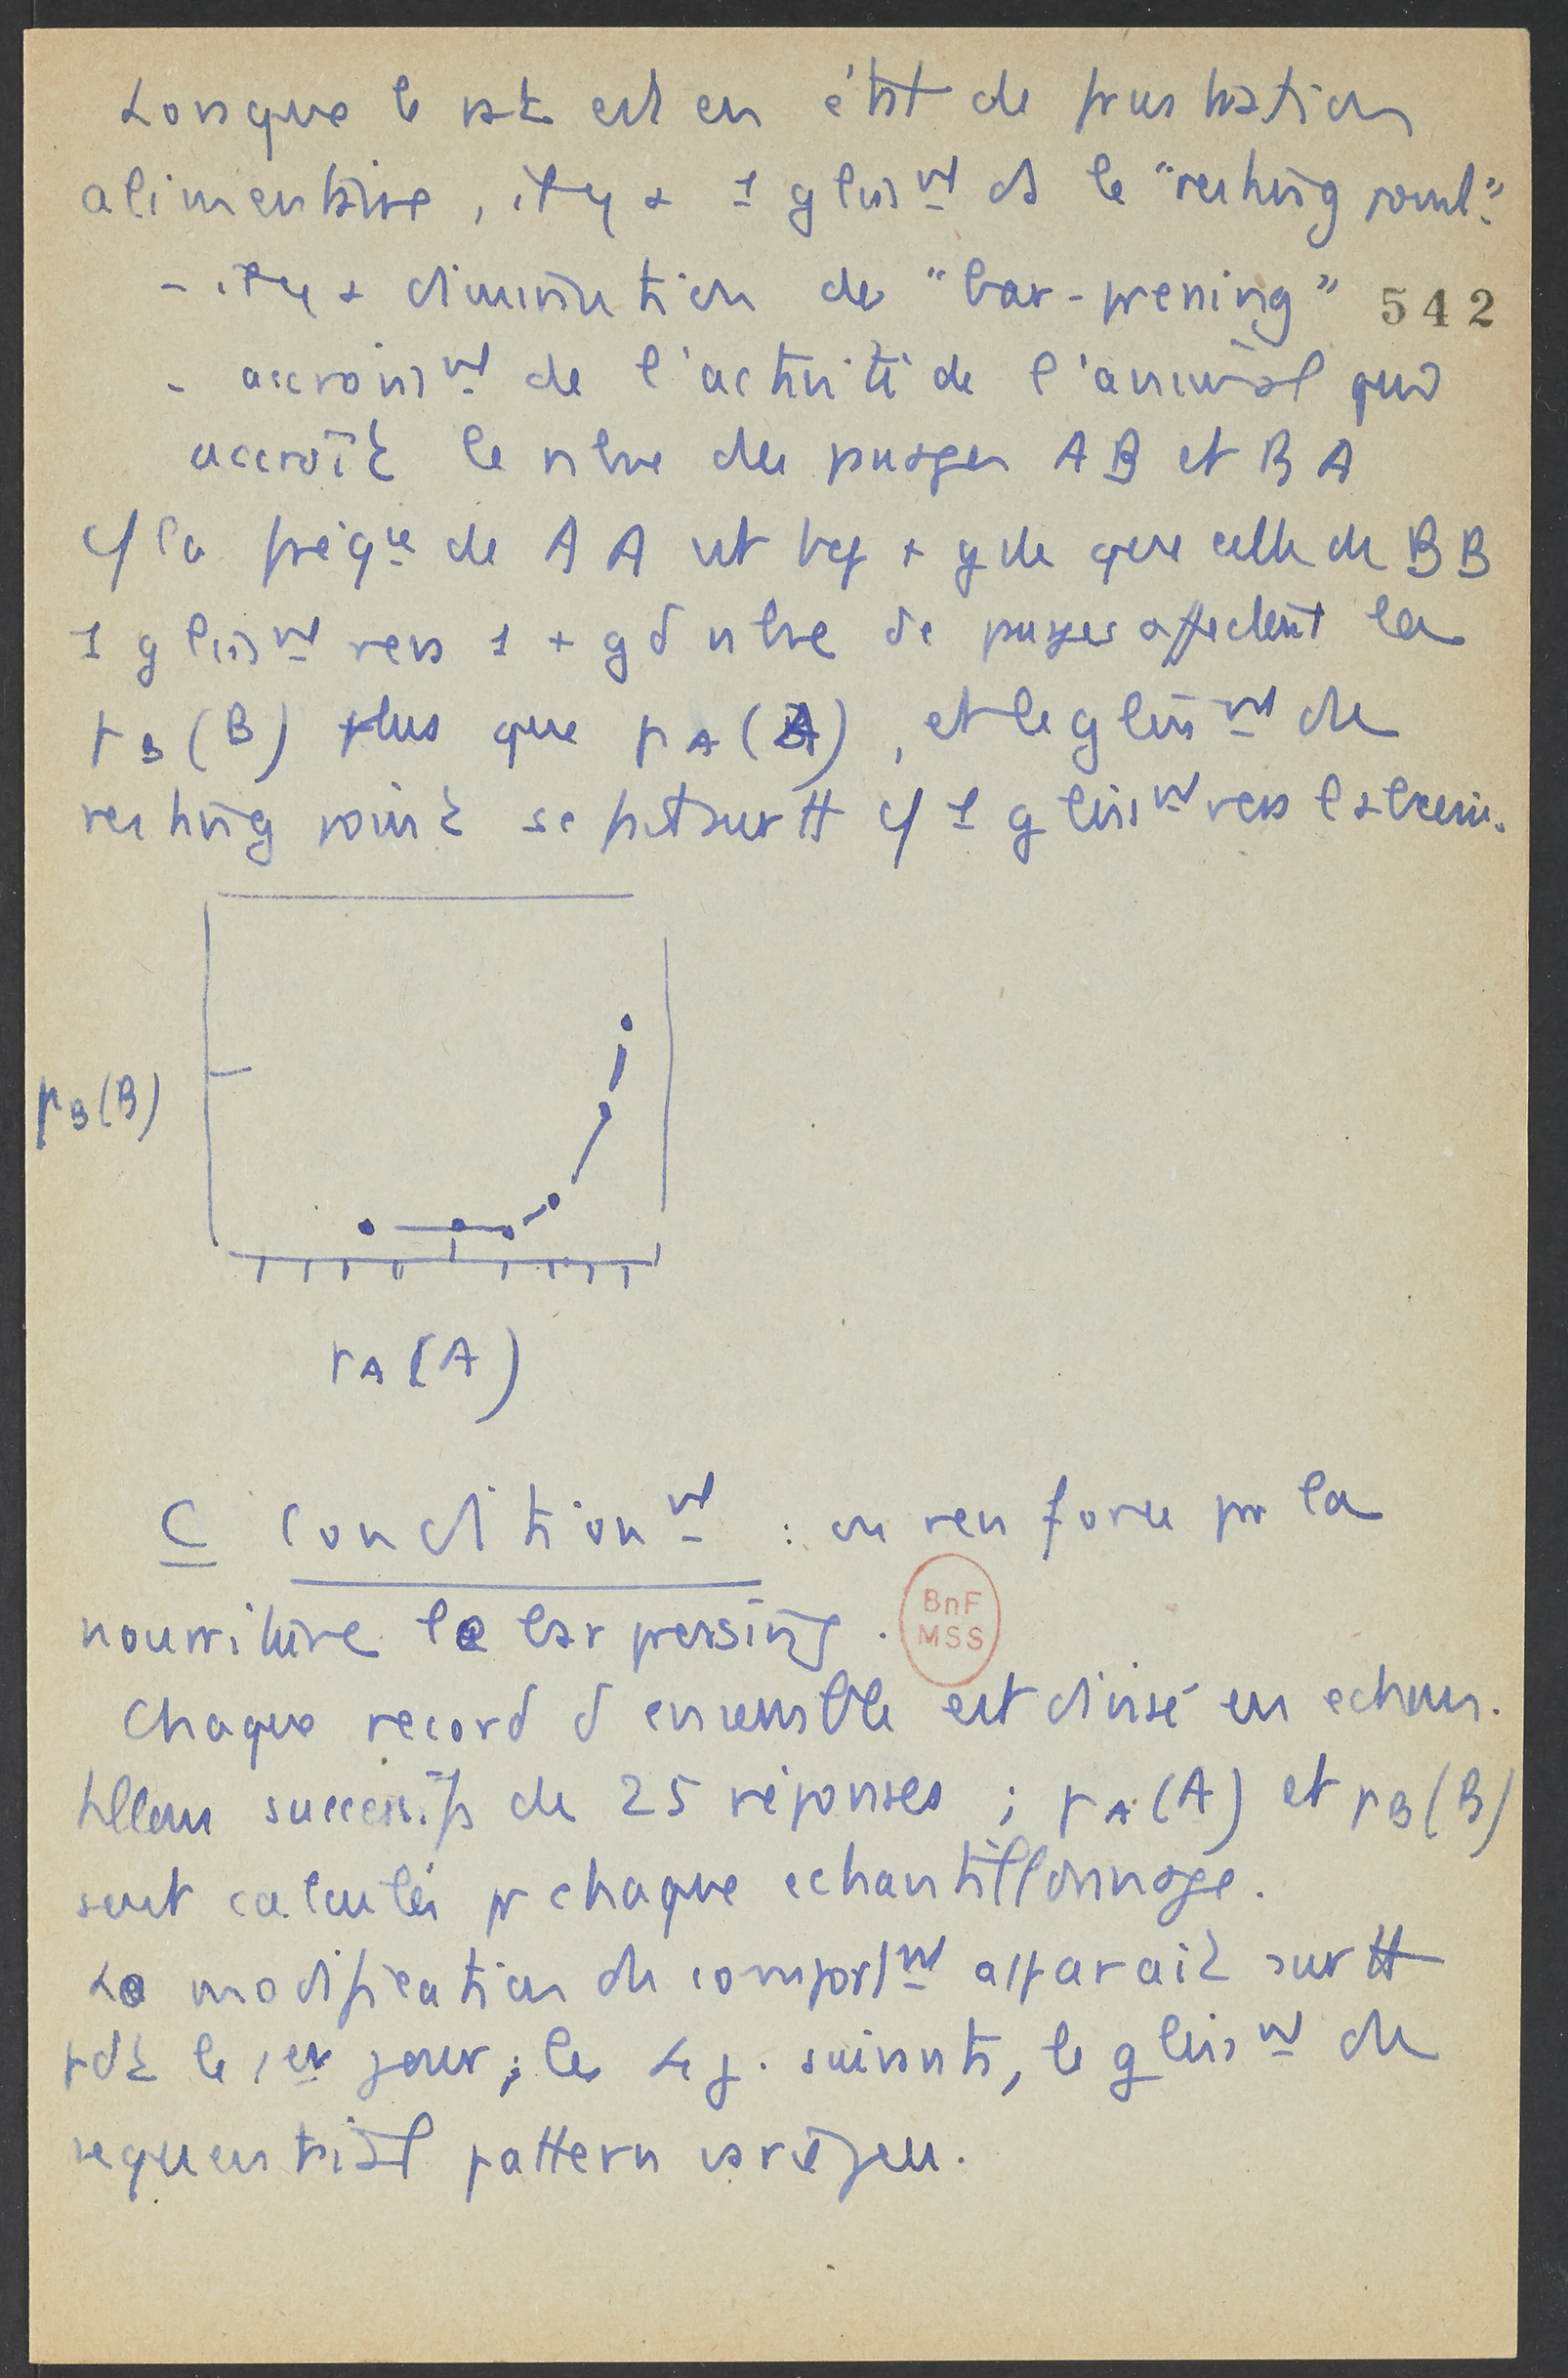 Lorsque le rat est en état de frustration
alimentaire, il y a 1 gliss^nt ds le "resting point".
- il y a diminution de "bar-pressing" 542
- accroiss^nt de l'activité de l'animal qui
accroît le nbre des passages AB et BA
c/ la fréq^ce de AA est bcp + gde que celle de BB
1 gliss^nt vers 1 + gd nbre de passages affectent la
p B (B) plus que p A (A), et le gliss^nt de
resting point se fait surtt c/ 1 gliss^nt vers
p B (B)
p A (A)
C Condition^nt : on renforce par la
nourriture le bar pressing.
BnF
MSS
Chaque record d'ensemble est divisé en échan-
tillons successifs de 25 réponses ; p A (A) et p B (B)
sont calculés pr chaque echantillonnage.
La modification de comport^nt apparait surtt
pdt le 1er jour ; les 4 j. suivants, le gliss^nt de
sequential pattern